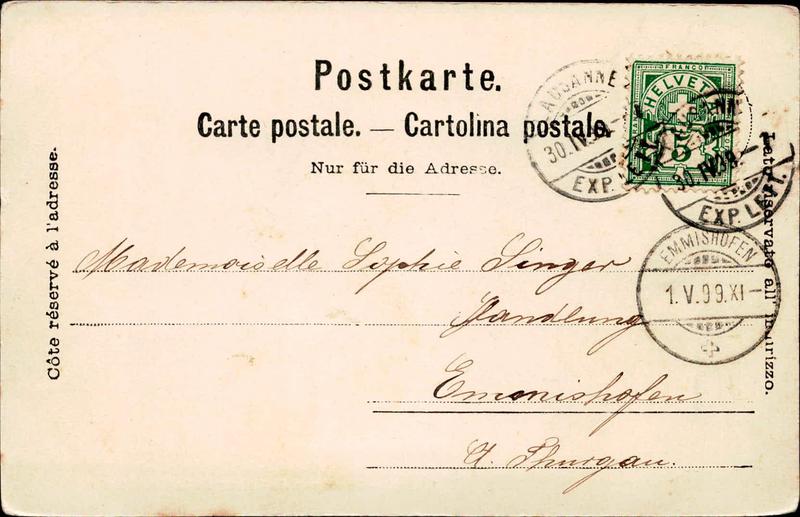 Postkarte.
Carte postale. — Cartolina postale.
Nur für die Adresse.
Côté réservé à l'adresse.
Lato riservato all' indirizzo.
FRANCO
HELVETIA
5
LAUSANNE
30.IV.99
EXP. LETT.
30.IV.99
EXP. LETT.
EMMISHOFEN
1.V.99.XI
Mademoiselle Sophie Singer
Handlung
Emmishofen
Ct. Thurgau.